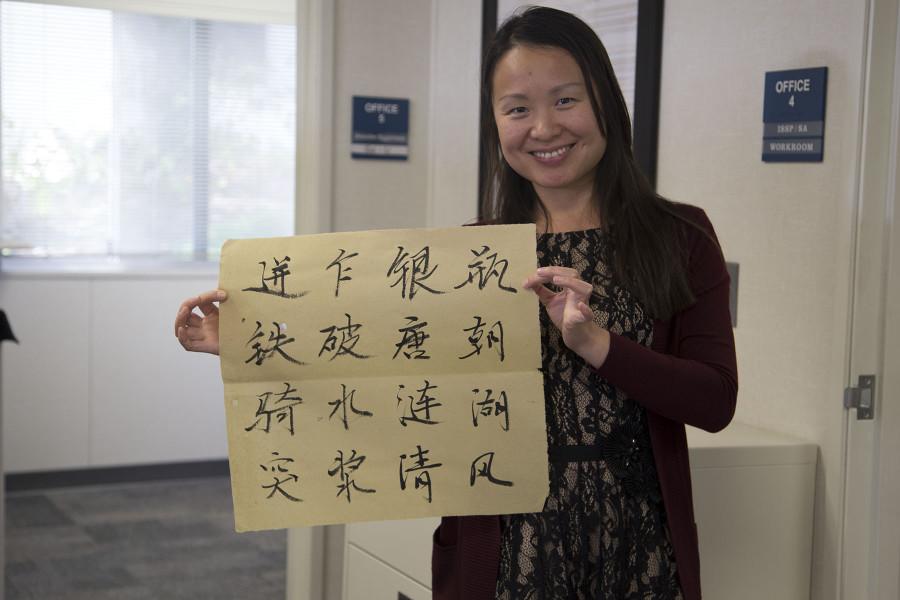 瓶朝湖风
银唐涟清
乍破水浆
迸铁骑突
OFFICE
5
OFFICE
4
ISSP/SA
WORKROOM